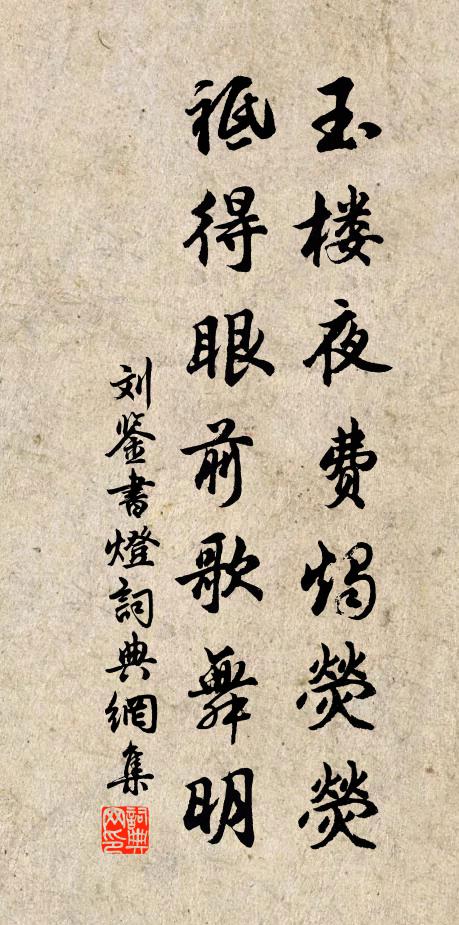 玉楼夜费烛荧荧
祗得眼前歌舞明
刘鉴书燈詞典網集
詞典网印